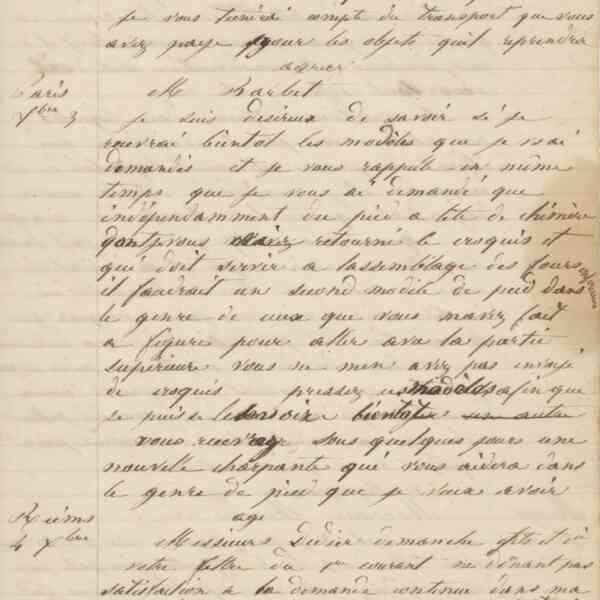 je vous tiendrai compte du transport que vous
avez payé pour les objets quil reprendra
Paris
Xbre 3
M Barbet
je suis desireux de savoir si je
recevrai bientot les modèles que je vs ai
demandés et je vous rappelle en même
temps que je vous ai demandé que
indépendamment du pied a tete de chimère
dont vous retourné le croquis et
qui doit servir a lassemblage des fours
il faudrait un second modèle de pied dans
le genre de ceux que vous mavez fait
a figure pour aller avec la partie
supérieure vous ne men avez pas envoyé
de croquis pressez modèles afin que
je puisse bientot un autre
vous recevrez sous quelques jours une
nouvelle charpante qui vous aidera dans
le genre de pied que je veux avoir
Reims
4 Xbre
Messieurs Didier demanche
votre lettre du 1er courant ne dônant pas
satisfaction à la demande contenue dans ma